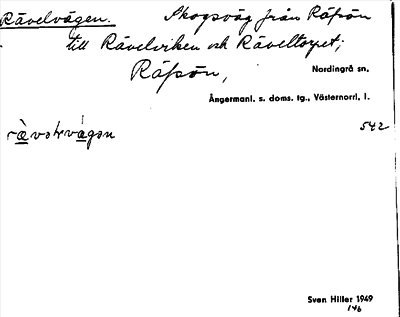 Rävelvägen. Skogsväg från Räfsön
till Rävelviken och Räveltorpet;
Räfsön, Nordingrå sn.
Ångermanl. s. doms. tg., Västernorrl. l.
542
Sven Hiller 1949
146